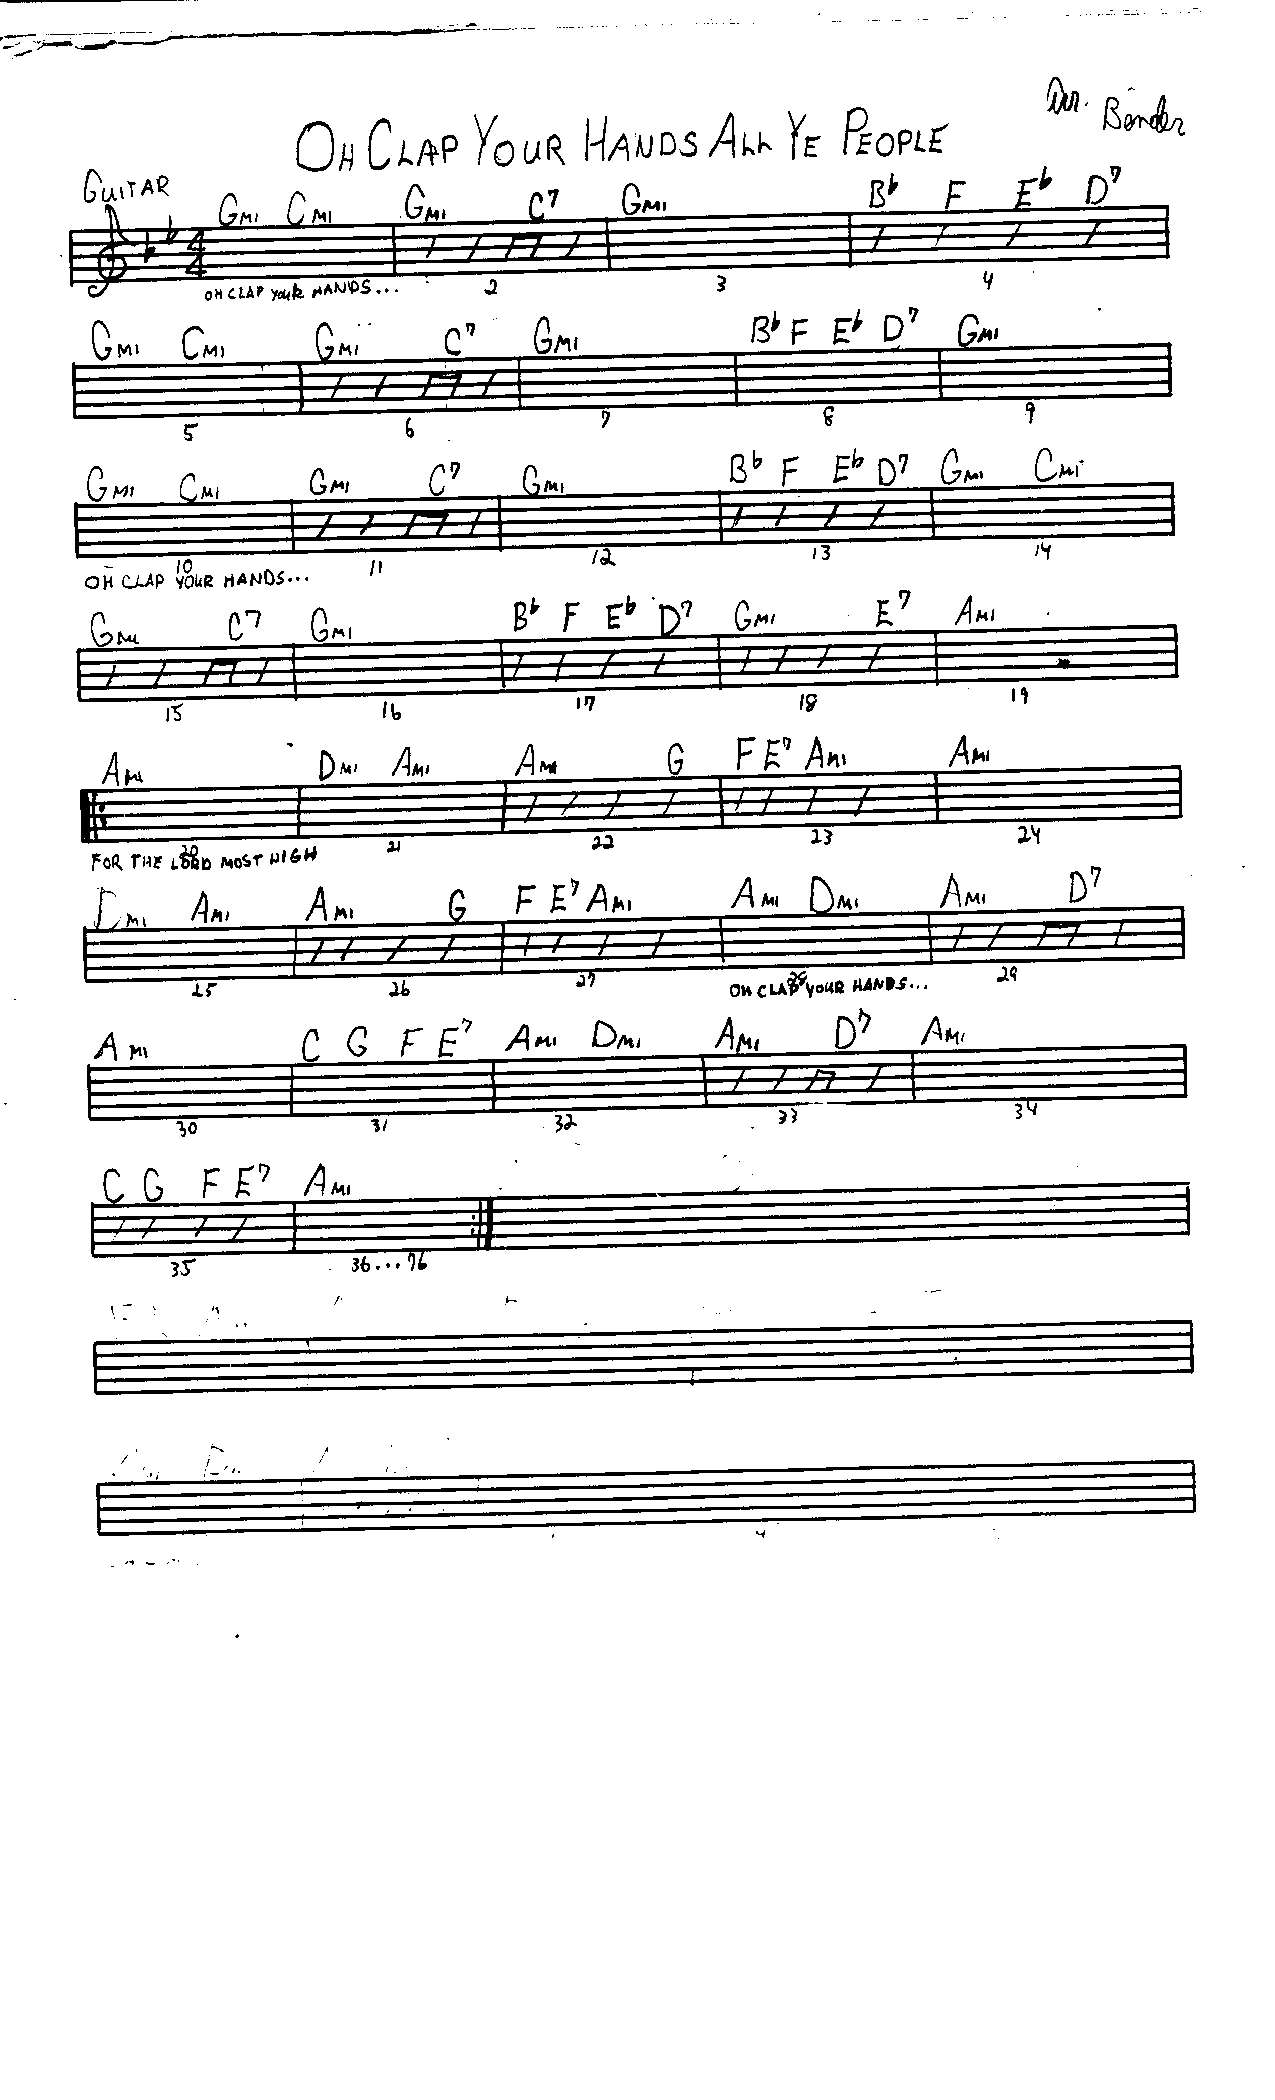 Arr. Bender
OH CLAP YOUR HANDS ALL YE PEOPLE
GUITAR
GMI CMI GMI C7 GMI B♭ F E♭ D7
4 4
OH CLAP YOUR HANDS... 2 3 4
GMI CMI GMI C7 GMI B♭ F E♭ D7 GMI
5 6 7 8 9
GMI CMI GMI C7 GMI B♭ F E♭ D7 GMI CMI
10 11 12 13 14
OH CLAP YOUR HANDS...
GMI C7 GMI B♭ F E♭ D7 GMI E7 AMI
15 16 17 18 19
AMI DMI AMI AMI G F E7 AMI AMI
20 21 22 23 24
FOR THE LORD MOST HIGH
DMI AMI AMI G F E7 AMI AMI DMI AMI D7
25 26 27 28 29
OH CLAP YOUR HANDS...
AMI C G F E7 AMI DMI AMI D7 AMI
30 31 32 33 34
C G F E7 AMI
35 36...76